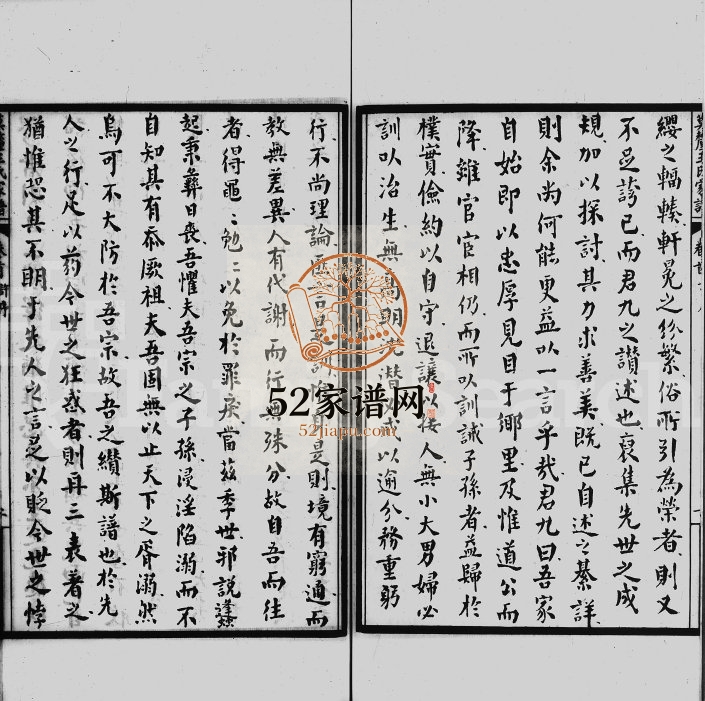 纓之輻輳軒冕之紛繁俗所引為榮者則又
不足誇已而君九之讚述也裒集先世之成
規加以探討其力求善美既已自述之綦詳
則余尚何能更益以一言乎哉君九曰吾家
自始即以忠厚見目于鄉里及惟道公而
降雖官宦相仍而所以訓誡子孫者益歸於
樸實儉約以自守退讓以接人無小大男婦必
訓以治生無高明沈潛 以逾分務重躬
行不尚理論 言 是則境有窮通而
教無差異人有代謝而行無殊分故自吾而往
者得黽黽勉勉以免於罪戾當茲季世邪說蠭
起秉彝日喪吾懼夫吾宗之子孫浸淫陷溺而不
自知其有忝厥祖夫吾固無以止天下之胥溺然
烏可不大防於吾宗故吾之纘斯譜也於先
人之行足以药今世之狂惑者則再三表著之
猶惟恐其不明于先人之言足以貶今世之悖
52家谱网
52jiapu.com